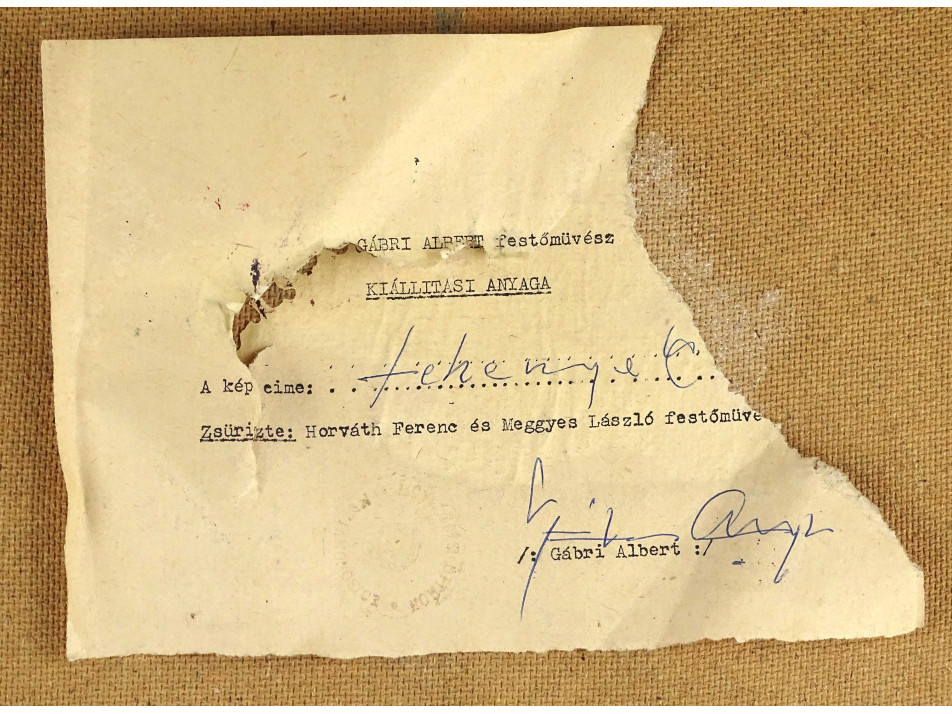 GÁBRI ALBERT festőmüvész
KIÁLLITASI ANYAGA
A kép eime:
Zsürizte: Horváth Ferenc és Meggyes László festőmüve
/: Gábri Albert :/